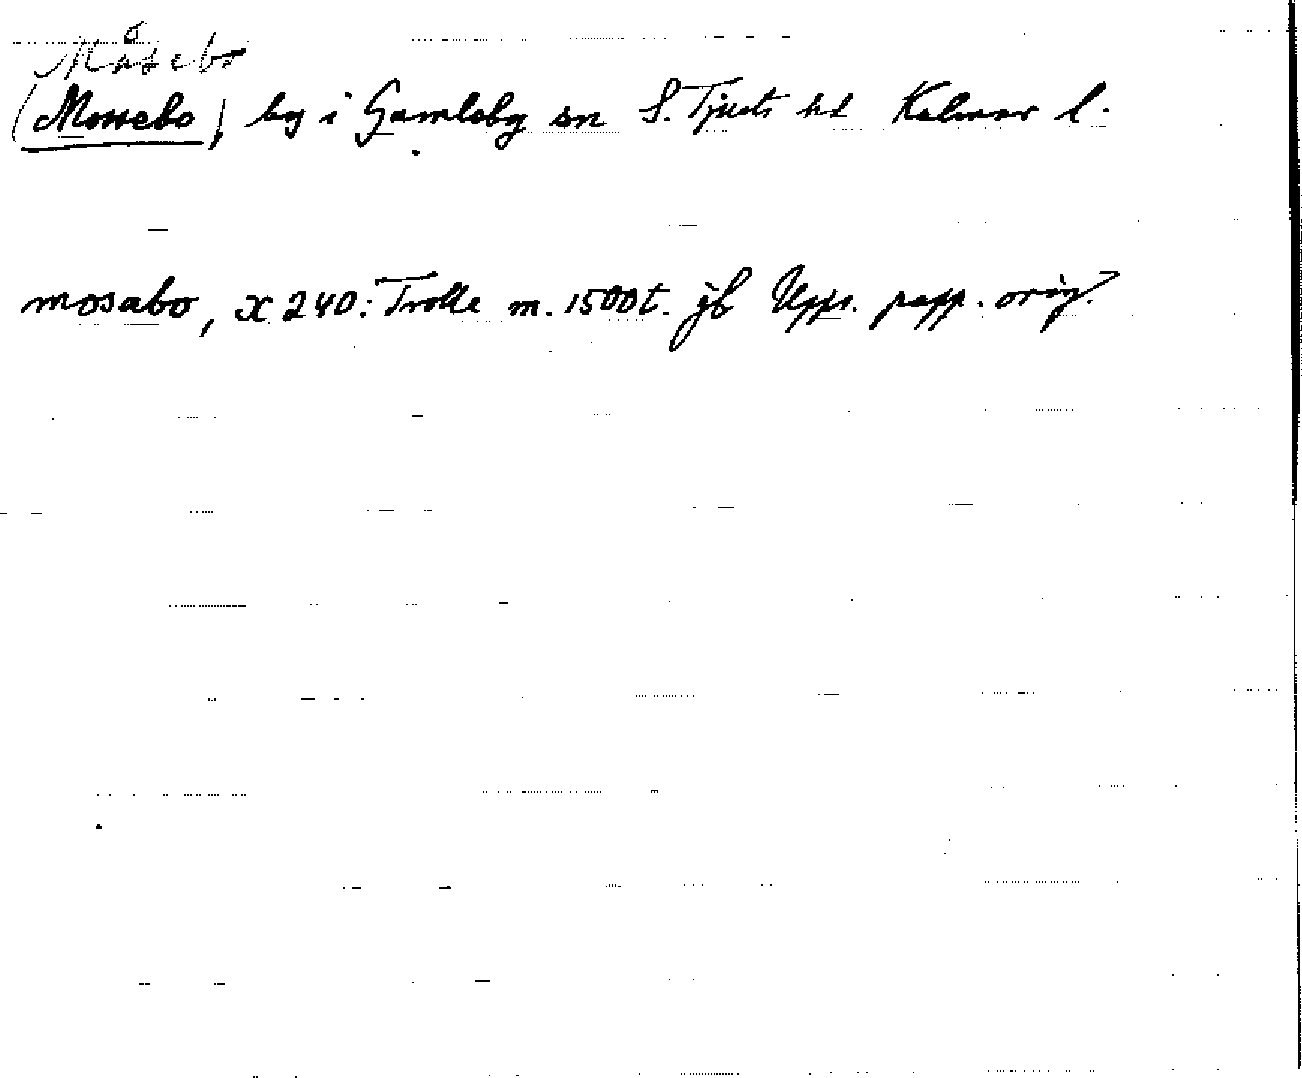 Måsebo
(Mossebo), by i Gamleby sn S. Tjusts hd Kalmar l.
mosabo, x 240: Trolle m. 1500t. jb Upps. papp. orig.